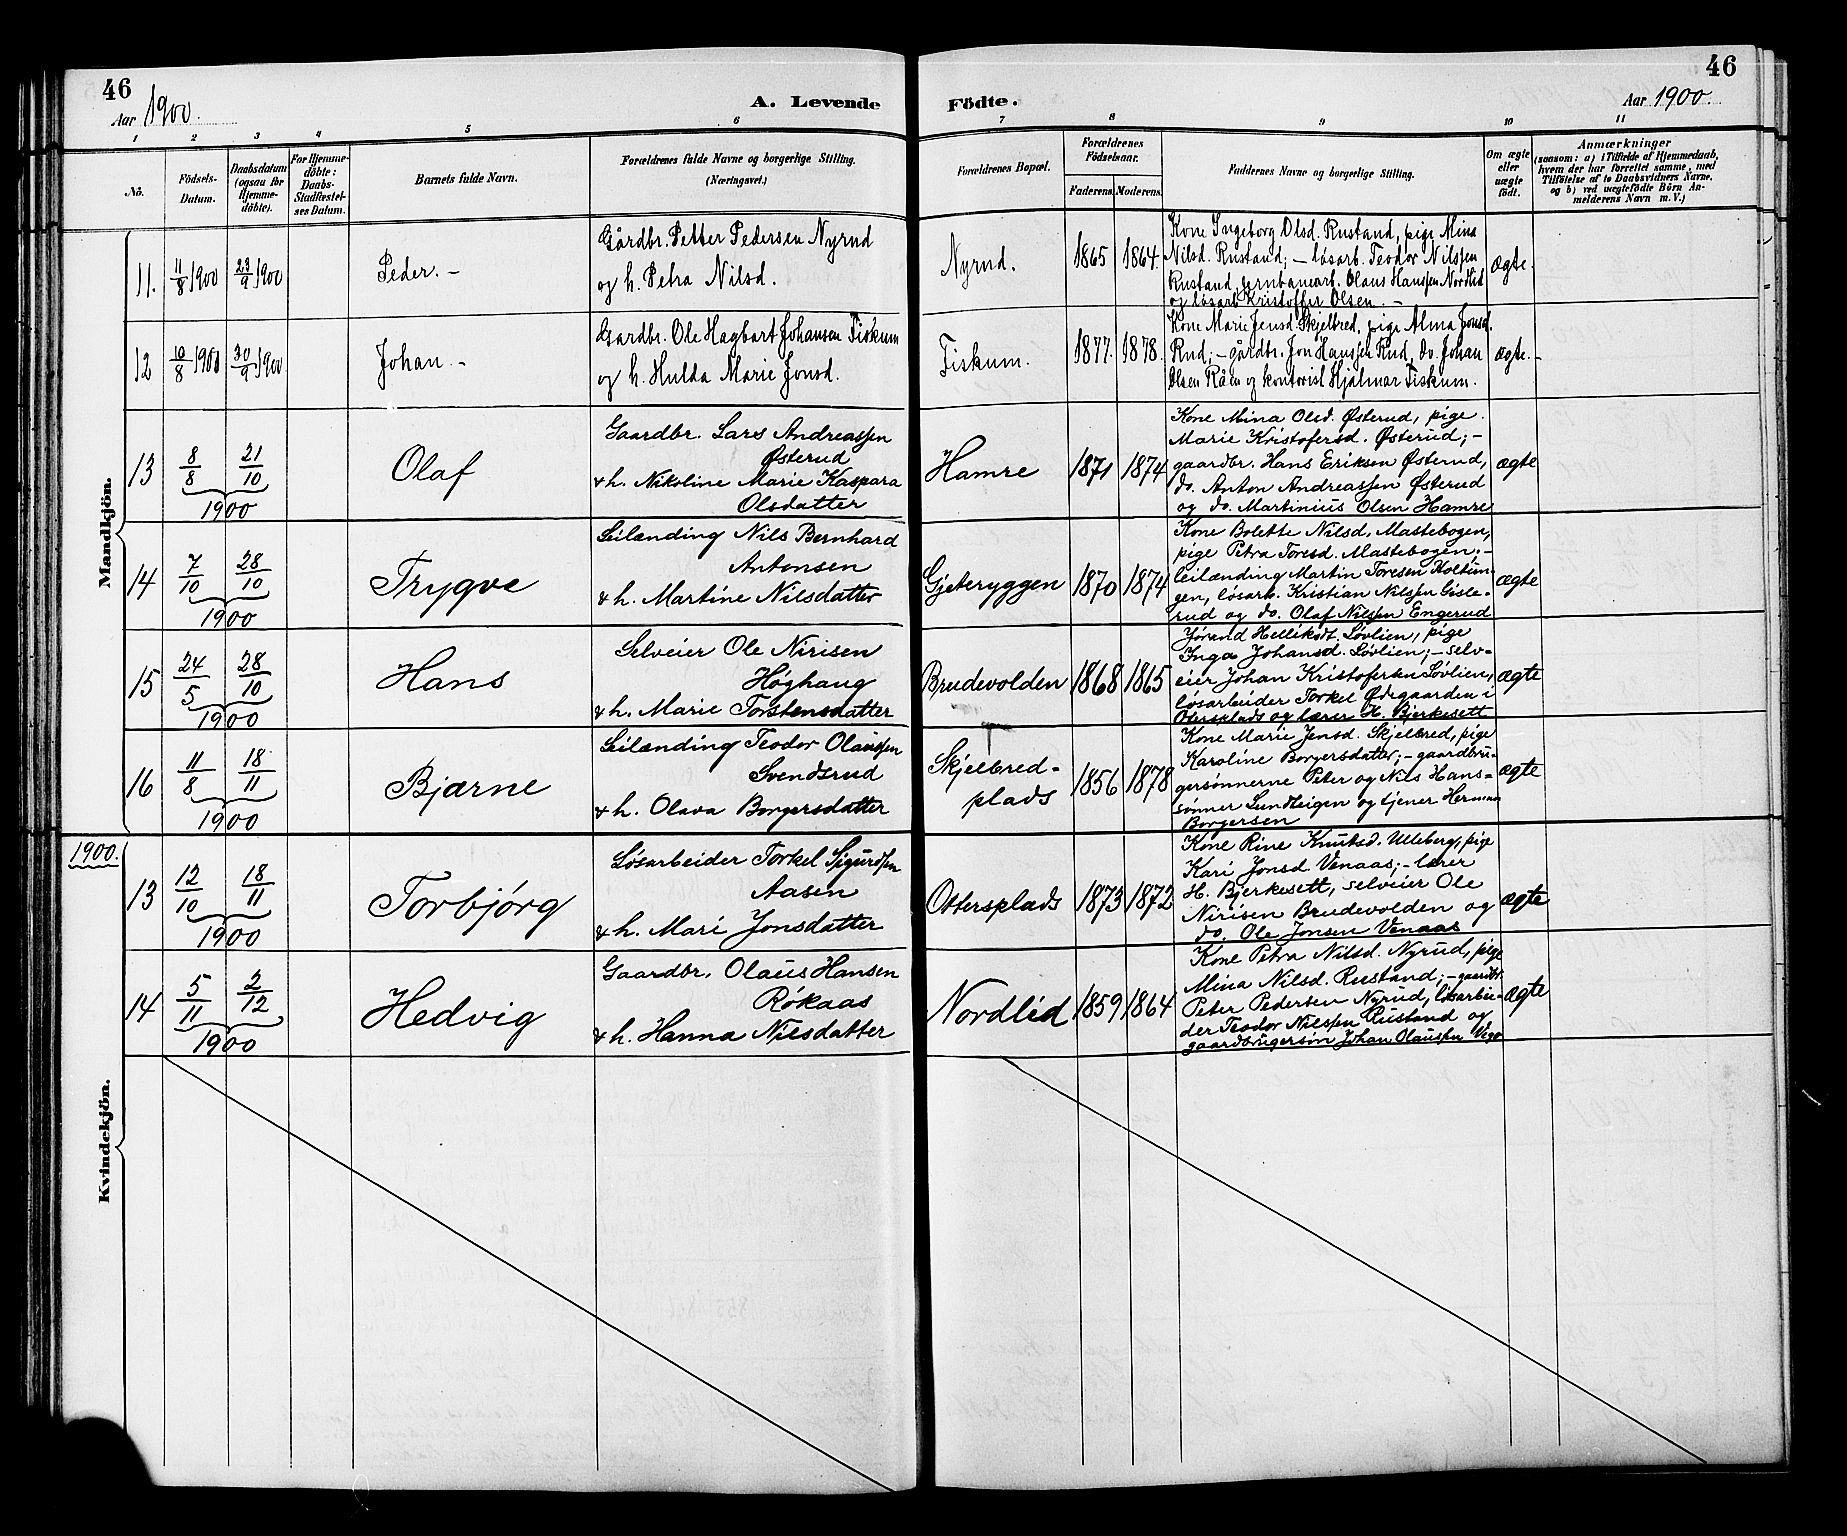 46
Aar 1900.
A. Levende Födte.
46
Aar 1900.
1 2 3 4 5 6 7 8 9 10 11
No.
Födsels-
Datum.
Daabsdatum
(ogsaa for
Hjemme-
döbte).
For Hjemme-
döbte:
Daabs-
Stadfæstel-
ses Datum.
Barnets fulde Navn.
Forældrenes fulde Navne og borgerlige Stilling.
(Næringsvei.)
Forældrenes Bopæl.
Forældrenes
Födselsaar.
Faderens.
Moderens.
Faddernes Navne og borgerlige Stilling.
Om ægte
eller
uægte
födt.
Anmærkninger
(saasom: a) i Tilfælde af Hjemmedaab,
hvem der har forrettet samme, med
Tilföielse af to Daabsvidners Navne,
og b) ved uægtefödte Börn An-
melderens Navn m. V.)
Mandkjön.
11. 11/8 1900 23/9 1900
Peder. -
Gårdbr. Petter Pedersen Nyrud
og h. Petra Nilsd.
Nyrud.
1865 1864.
Kone Ingeborg Olsd. Rustand, pige Mina
Nilsd. Rustand; - løsarb. Teodor Nilssen
Rustand, jernbanearb. Olaus Hanssen Nordlid
og løsarb. Kristoffer Olsen. -
ægte.
12 10/8 1900 30/9 1900
Johan. -
Gårdbr. Ole Hagbart Johansen Fiskum
og h. Hulda Marie Jonsd.
Fiskum.
1877. 1878.
Kone Marie Jensd. Skjelbred, pige Alma Jonsd.
Rud; - gårdbr. Jon Hanssen Rud, do. Johan
Olsen Råen og kontorist Hjalmar Fiskum.
ægte. -
13 8/8 21/10
1900
Olaf
Gaardbr. Lars Andreassen
Østerud
& h. Nikoline Marie Kaspara
Olsdatter
Hamre
1871 1874
Kone Mina Olsd. Østerud, pige
Marie Kristofersd. Østerud; -
gaardbr. Hans Eriksen Østerud,
do. Anton Andreassen Østerud
og do. Martinius Olsen Hamre
ægte
14 7/10 28/10
1900
Trygve
Leilænding Nils Bernhard
Antonsen
& h. Martine Nilsdatter
Gjeteryggen
1870 1874
Kone Bolette Nilsd. Mastebogen,
pige Petra Toresd. Mastebogen; -
leilænding Martin Toresen Koltun-
gen, løsarb. Kristian Nilssen Gisle-
rud og do. Olaf Nilssen Engerud
ægte
15 24/5 28/10
1900
Hans
Selveier Ole Nirisen
Høghaug
& h. Marie Torstensdatter
Brudevolden
1868 1865
Jørand Helliksdt. Løvlien, pige
Inga Johansd. Løvlien; - selv-
eier Johan Kristofersen Løvlien,
løsarbeider Torkel Ødegaarden i
Otersplads og lærer H. Bjerkesett
ægte
16 11/8 18/11
1900
Bjarne
Leilænding Teodor Olaussen
Svendsrud
& h. Olava Borgersdatter
Skjelbred-
plads
1856 1878
Kone Marie Jensd. Skjelbred, pige
Karoline Borgersdatter; - gaardbru-
gersønnerne Peter og Nils Hans-
sønner Sundteigen og tjener Herman
Borgersen
ægte
1900.
Kvindekjön.
13 12/10 18/11
1900
Torbjørg
Løsarbeider Torkel Sigurdsen
Aasen
& h. Mari Jonsdatter
Ottersplads
1873 1872
Kone Rine Knutsd. Ulleberg, pige
Kari Jonsd. Venaas; - lærer
H. Bjerkesett, selveier Ole
Nirisen Brudevolden og
do. Ole Jonsen Venaas
ægte
14 5/11 2/12
1900
Hedvig
Gaardbr. Olaus Hansen
Røkaas
& h. Hanna Nilsdatter
Nordlid
1859 1864
Kone Petra Nilsd. Nyrud, pige
Mina Nilsd. Rustand; - gaardbr.
Peter Pedersen Nyrud, løsarbei-
der Teodor Nilssen Rustand og
gaardbrugersøn Johan Olaussen
ægte